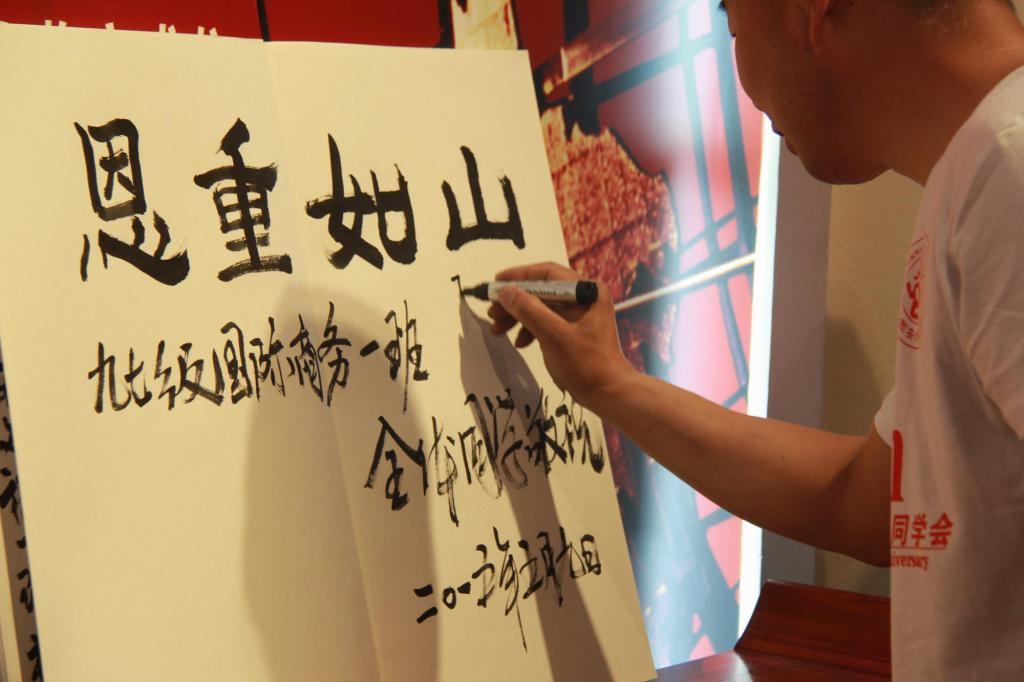 恩重如山
九七级国际商务一班
全体同学敬祝
二〇一五年五月九日
同学会
iversary